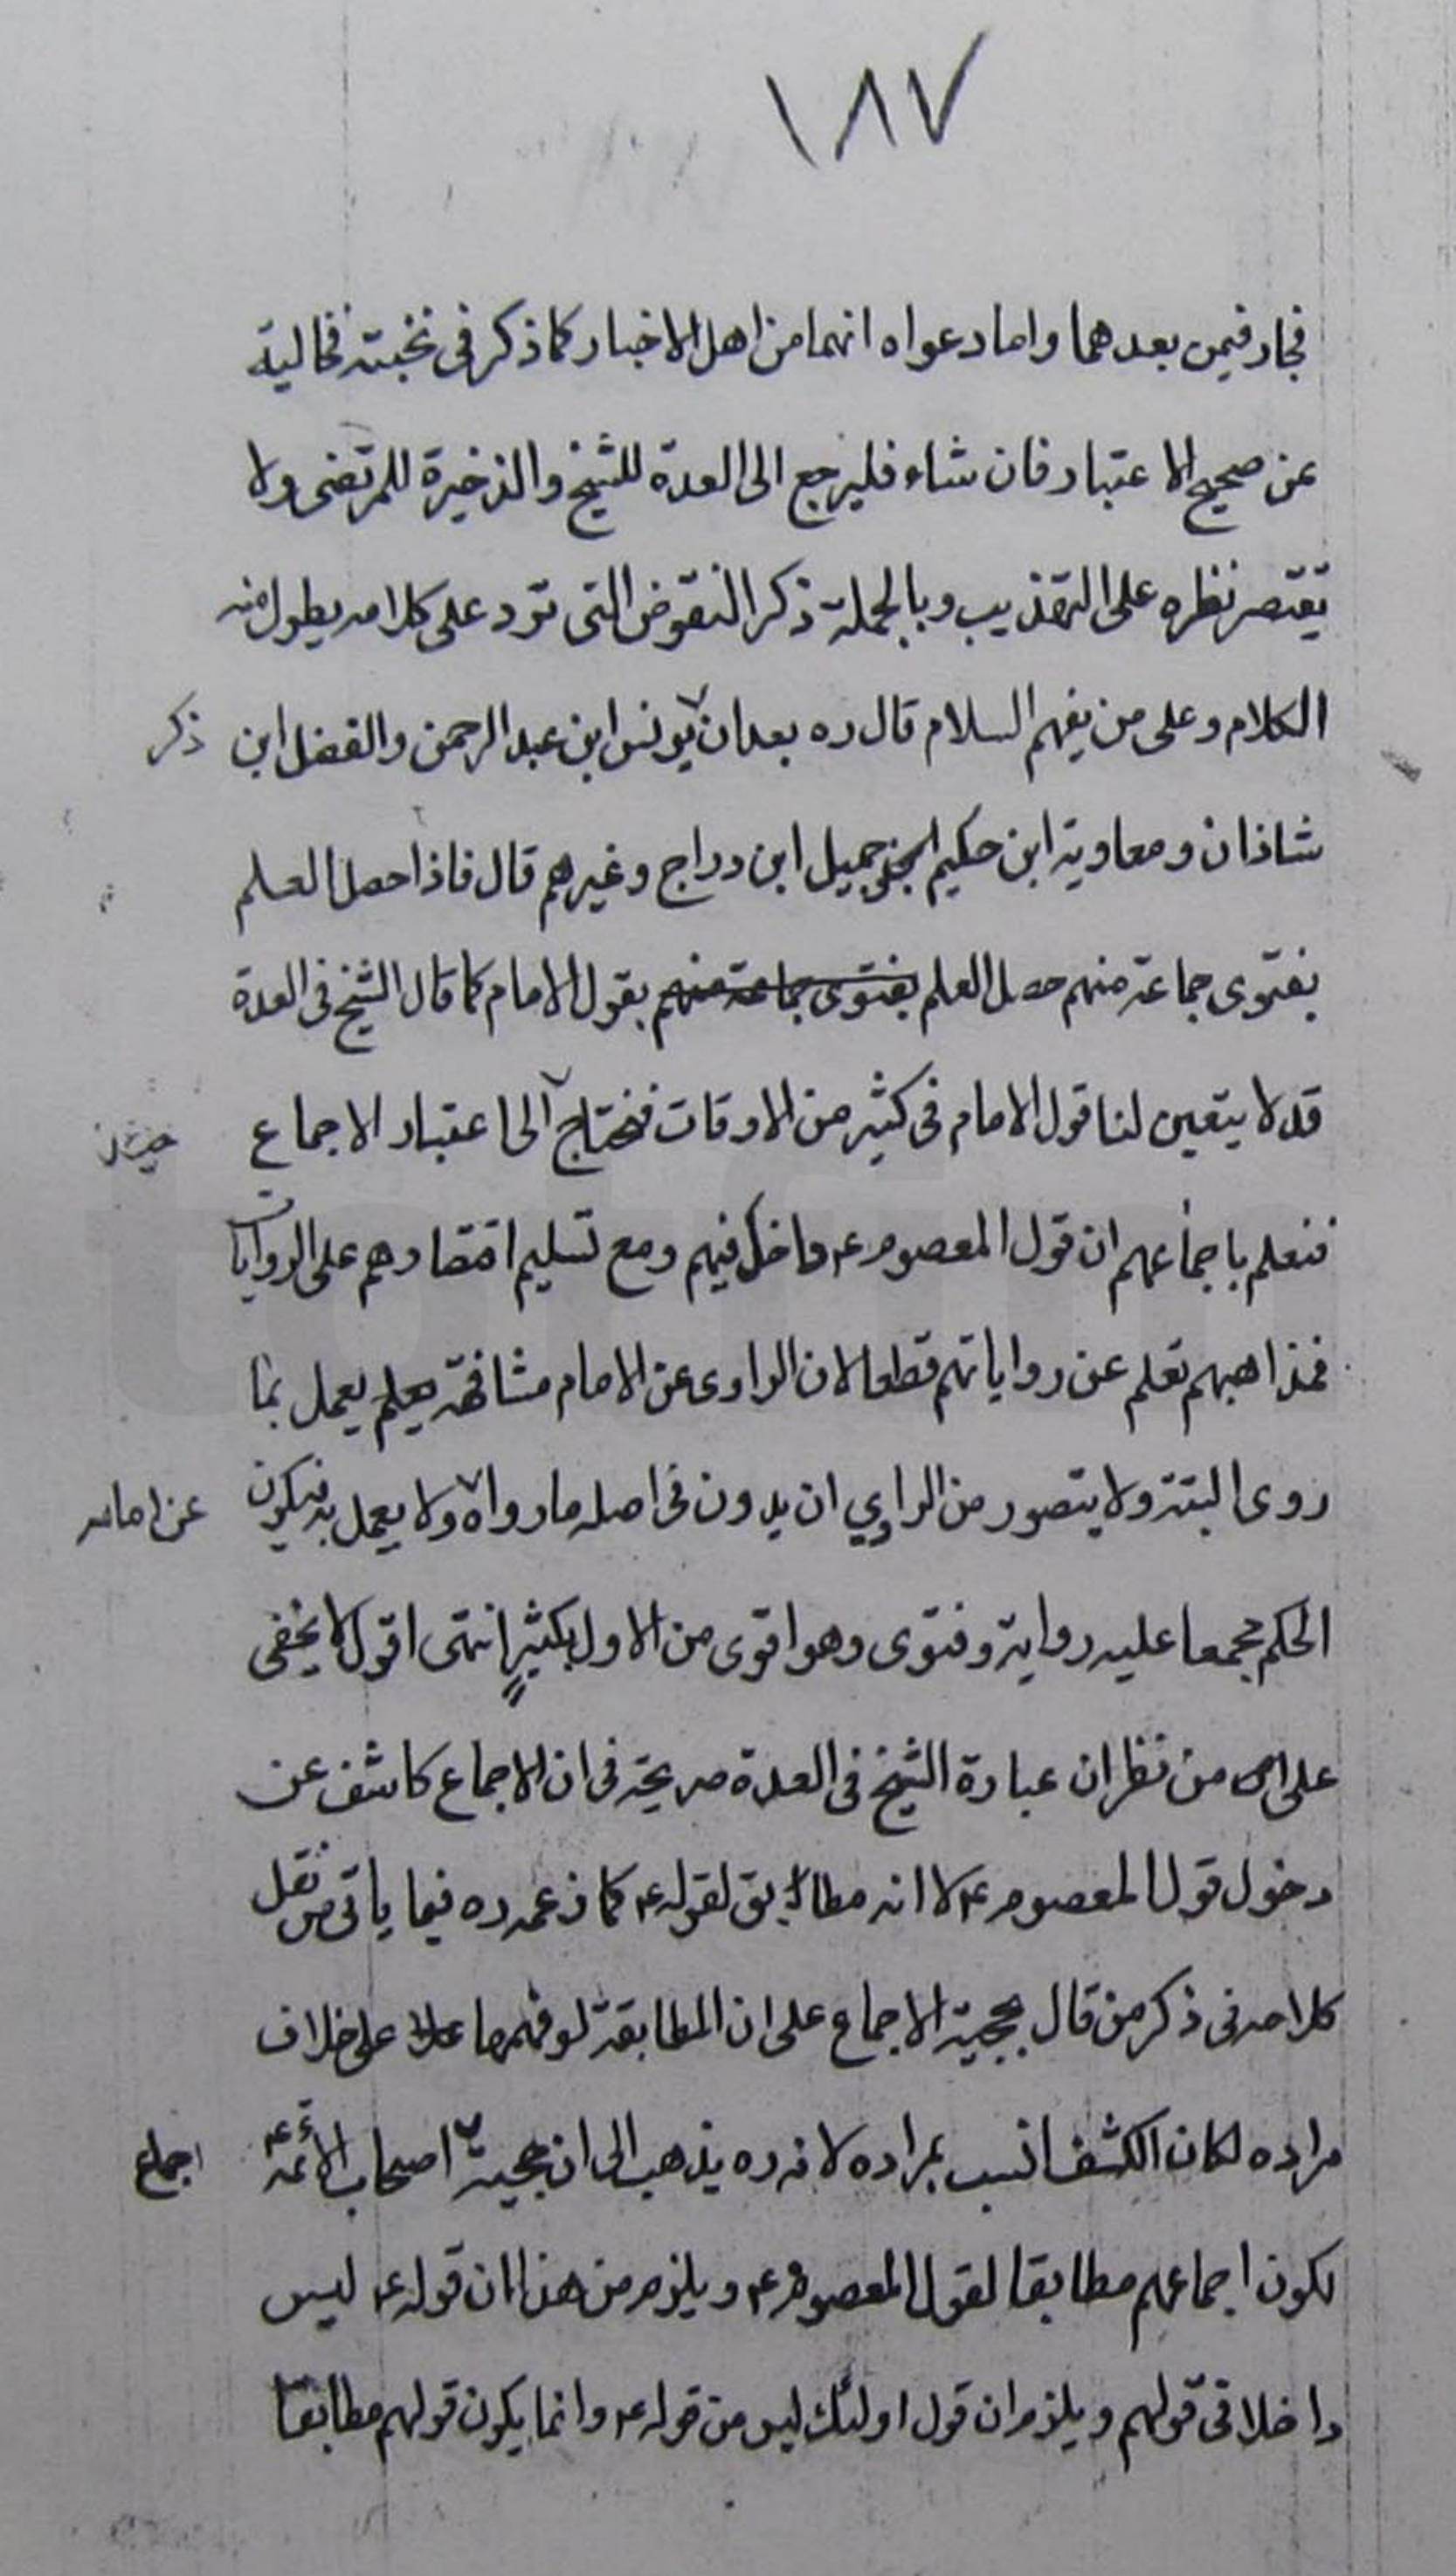 ١٨٧
فجار فيمن بعدهما واما دعواه انهما من اهل الاخبار كما ذكر فى نخبته فخالية
عن صحيح الاعتبار فان شاء فليرجع الى العدة للشيخ والذخيرة للمرتضى ولا
يقتصر نظره على التهذيب وبالجملة ذكر النقوض التى ترد على كلامه يطول منه
الكلام وعلى من يفهم السلام قال ره بعد ان يونس ابن عبد الرحمن والفضل ابن
ذكر
شاذان ومعاوية ابن حكيم جميل ابن دراج وغيرهم قال فاذا حصل العلم
بفتوى جماعة منهم حصل العلم بفتوى جماعة منهم بقول الامام كما قال الشيخ فى العدة
قد لا يتعين لنا قول الامام فى كثير من الاوقات فنحتاج الى اعتبار الاجماع
حينئذ
فنعلم باجماعهم ان قول المعصوم ع داخل فيهم ومع تسليم اقتصارهم على الروايات
فمذاهبهم تعلم عن رواياتهم قطعا لان الراوى عن الامام مشافهة يعلم يعمل بما
روى البتة ولا يتصور من الراوي ان يدون فى اصله ما رواه ولا يعمل به فيكون
عن امامه
الحكم مجمعا عليه رواية وفتوى وهو اقوى من الاول بكثيرٍ انتهى اقول لا يخفى
على من نظر ان عبارة الشيخ فى العدة صريحة فى ان الاجماع كاشف عن
دخول قول المعصوم ع لا انه مطابق لقوله ع كما زعمه ره فيما ياتى من نقل
كلامه فى ذكر من قال بحجية الاجماع على ان المطابقة لو فهمها على خلاف
مراده لكان الكشف انسب بمراده لانه ره يذهب الى ان حجية اصحاب الأئمة ع
اجماع
لكون اجماعهم مطابقا لقول المعصوم ع ويلزم من هذا ان قوله ع ليس
داخلا فى قولهم ويلزم ان قول اولئك ليس من قوله ع وانما يكون قولهم مطابقا